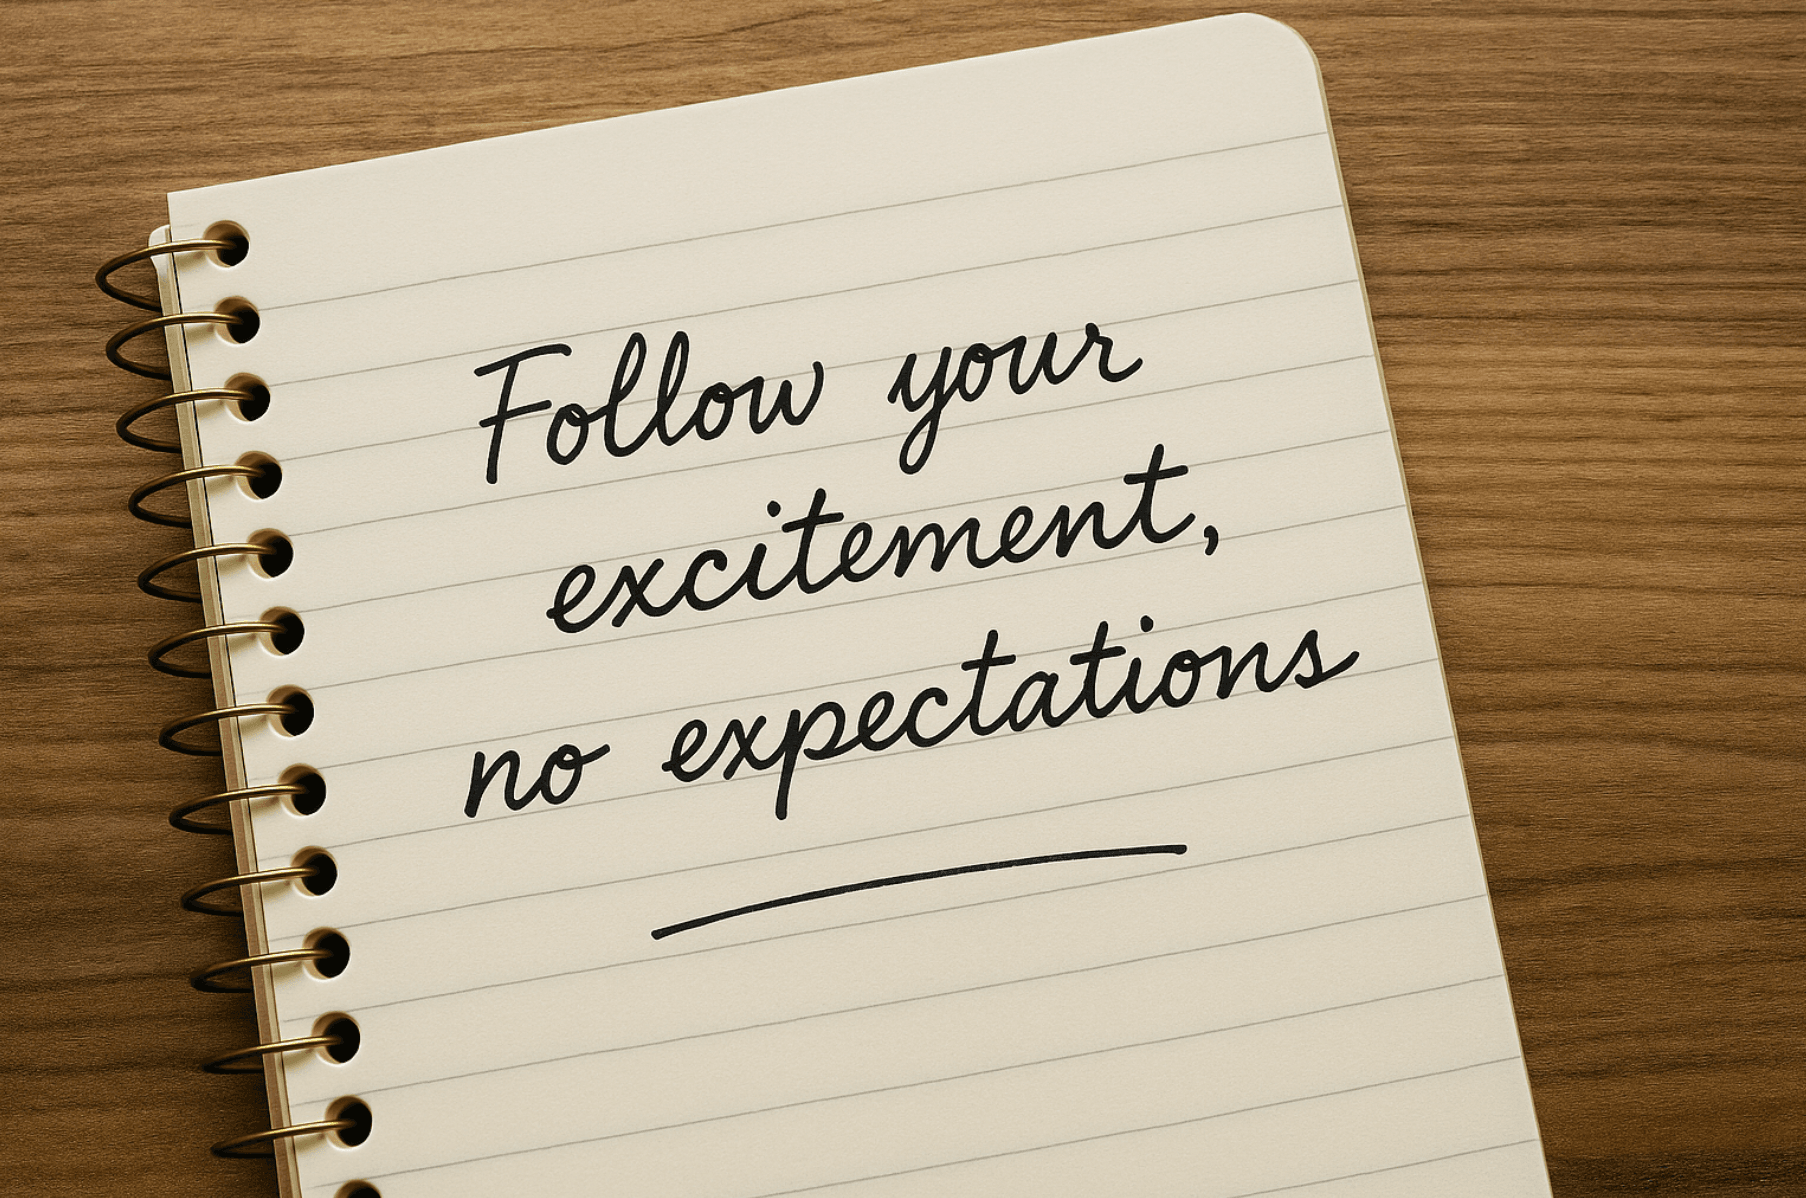 Follow your
excitement,
no expectations